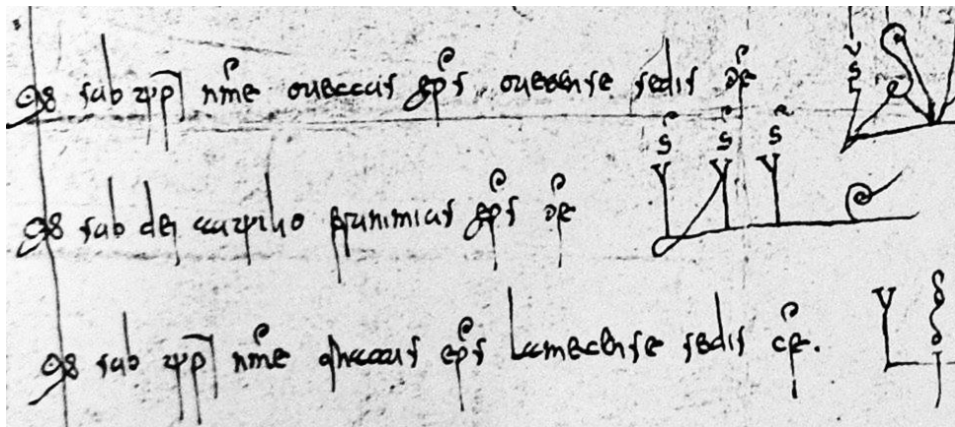 sub xpi nme oueccus eps ouetense sedis cf
sub dei auxilio frunimius eps cf
sub xpi nme eps lamecense sedis cf.